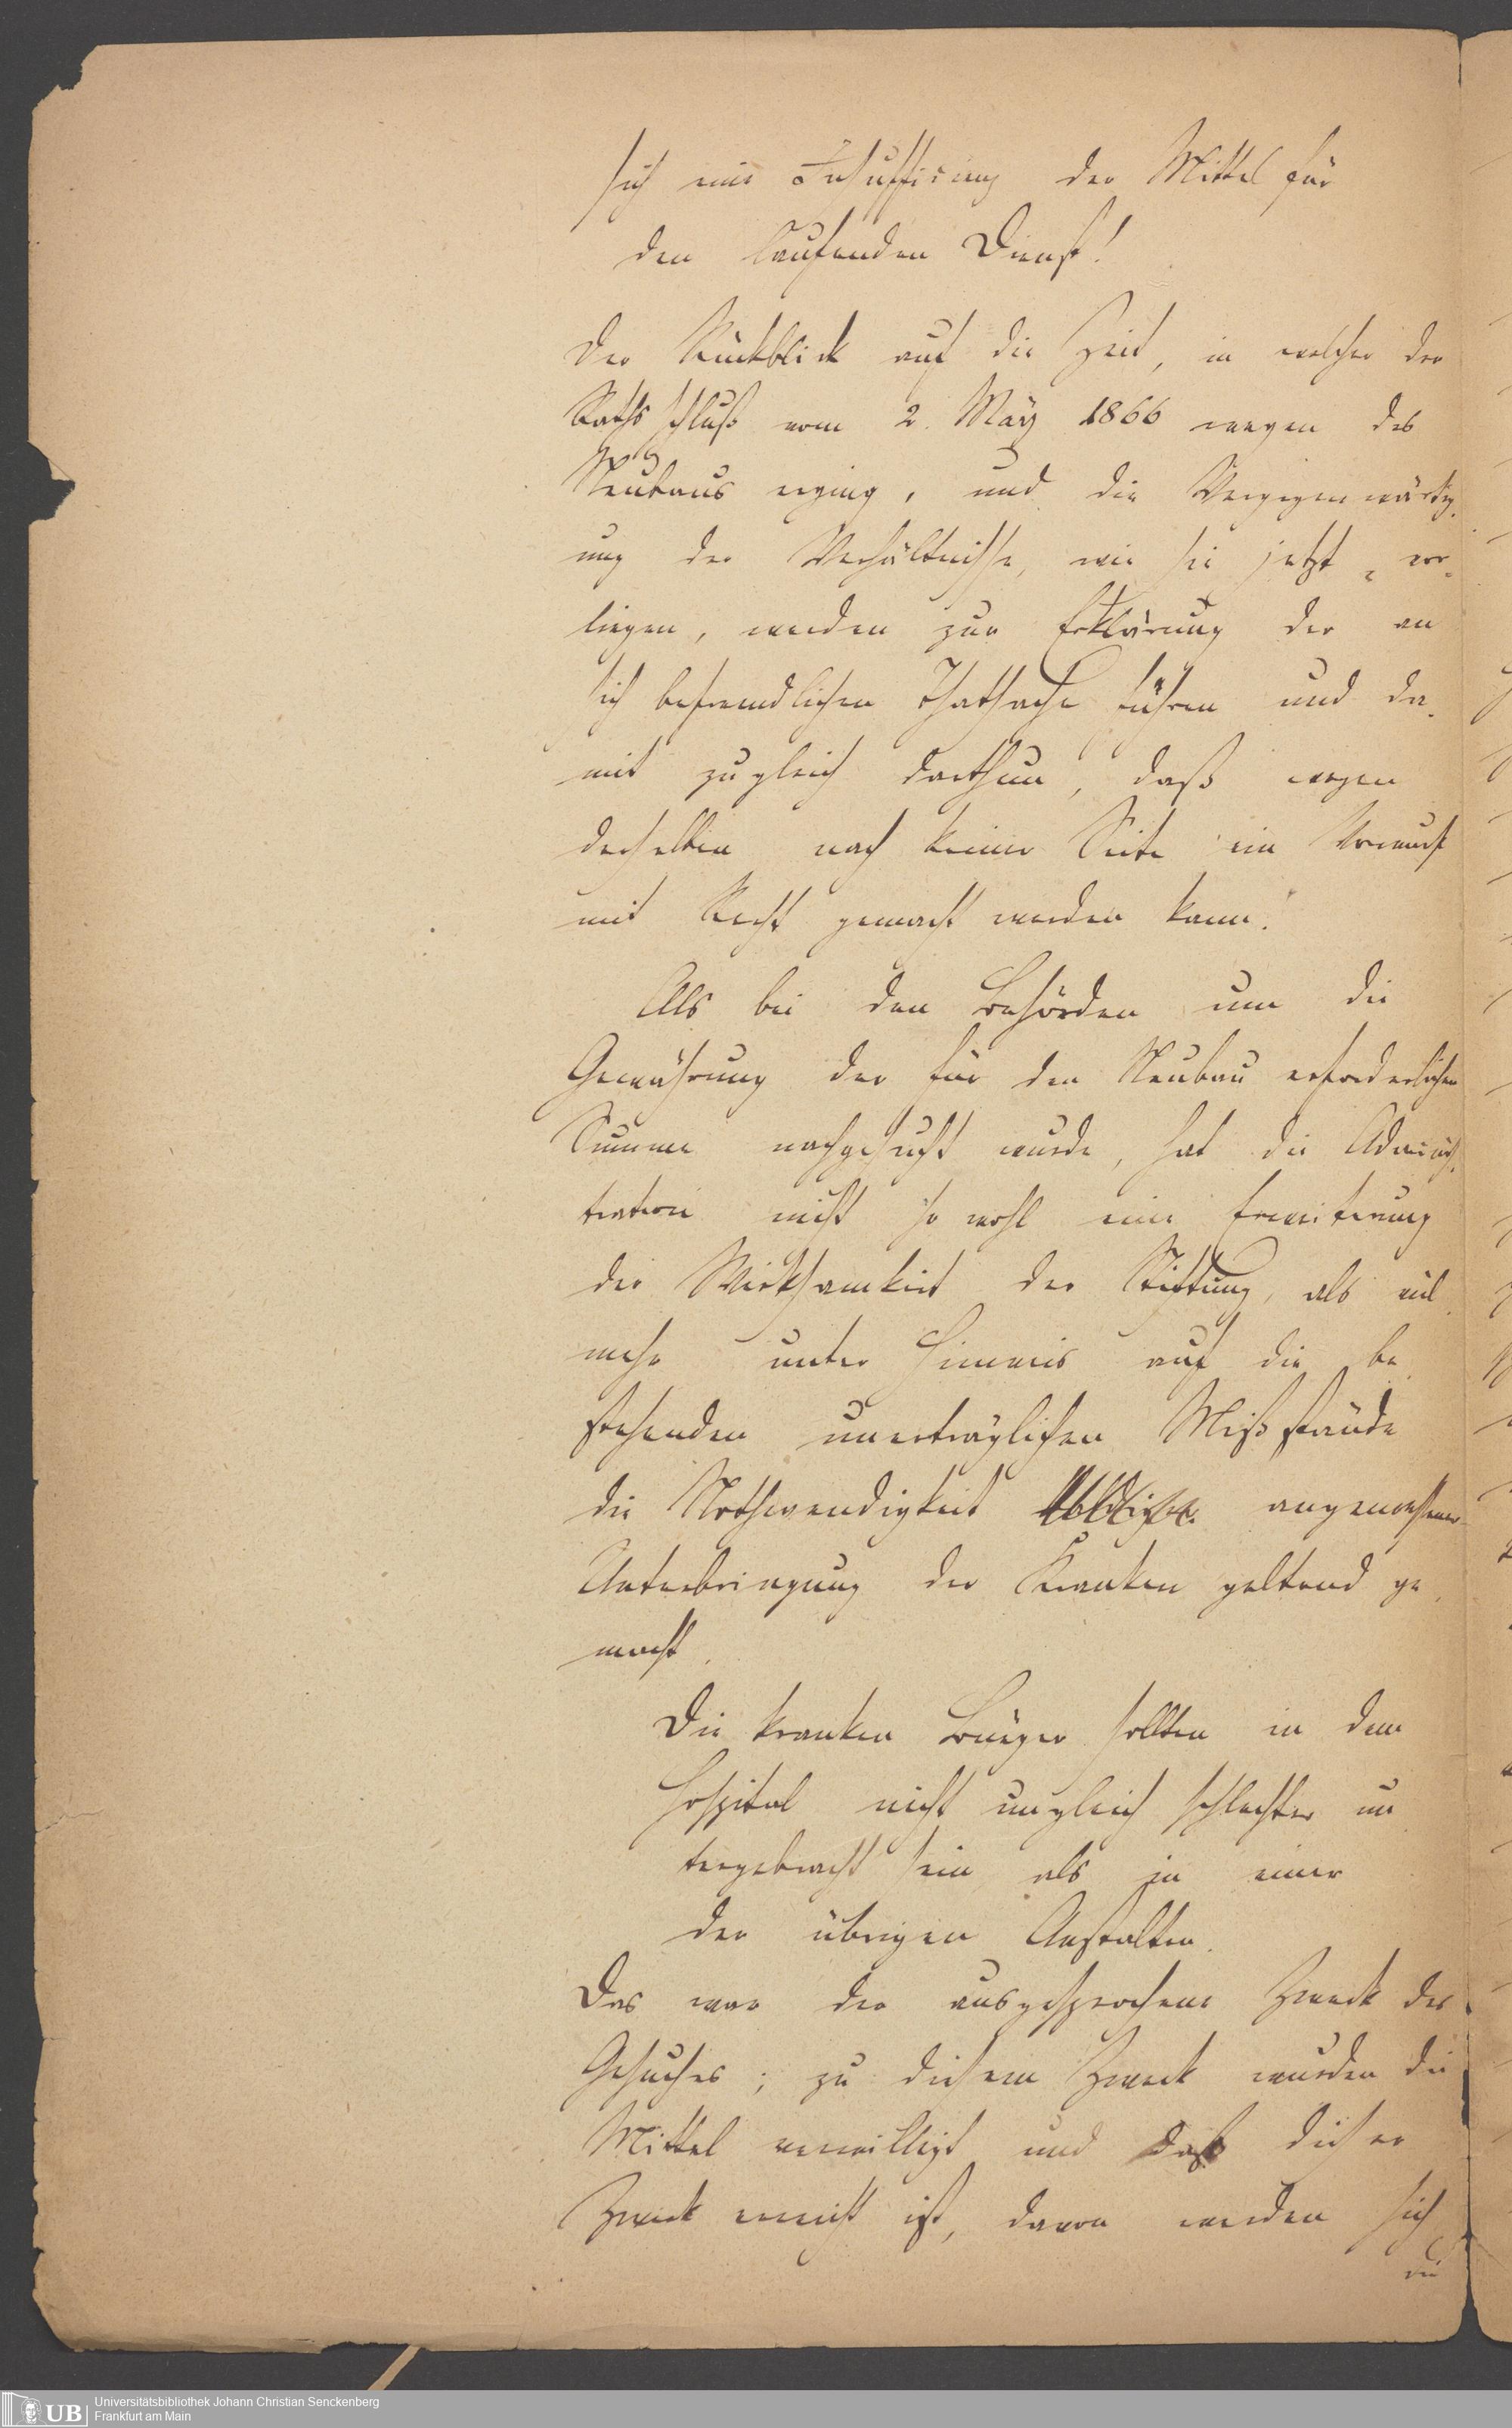 sich eine Insuffisienz der Mittel für
den laufenden Dienst!
Der Rückblick auf die Zeit, in welcher der
Raths schluß vom 2. März 1866 wegen des
Neubaus erging, und die Vergegenwärtig-
ung der Verhältnisse, wie sie jetzt vor-
liegen, werden zur Erklärung der an
sich befremdlichen Thatsache führen und da-
mit zugleich darthun, daß wegen
derselben nach keiner Seite ein Vorwurf
mit Recht gemacht werden kann.
Als bei den Behörden um die
Gewährung der für den Neubau erforderlichen
Summe nachgesucht wurde, hat die Adminis-
tration nicht so wohl eine Erweiterung
der Wirksamkeit der Stiftung, als viel
mehr unter Hinweis auf die be
stehenden unerträglichen Mißstände
die Nothwendigkeit angemessener
Unterbringung der Kranken geltend ge
macht.
Die kranken Bürger sollten in dem
Hospital nicht ungleich schlechter un
tergebracht sein als in einer
der übrigen Anstalten.
Das war der ausgesprochene Zweck des
Gesuches; zu diesem Zweck wurden die
Mittel verwilligt und daß dieser
Zweck erreicht ist, davon werden sich
die
Universitätsbibliothek Johann Christian Senckenberg
UB Frankfurt am Main